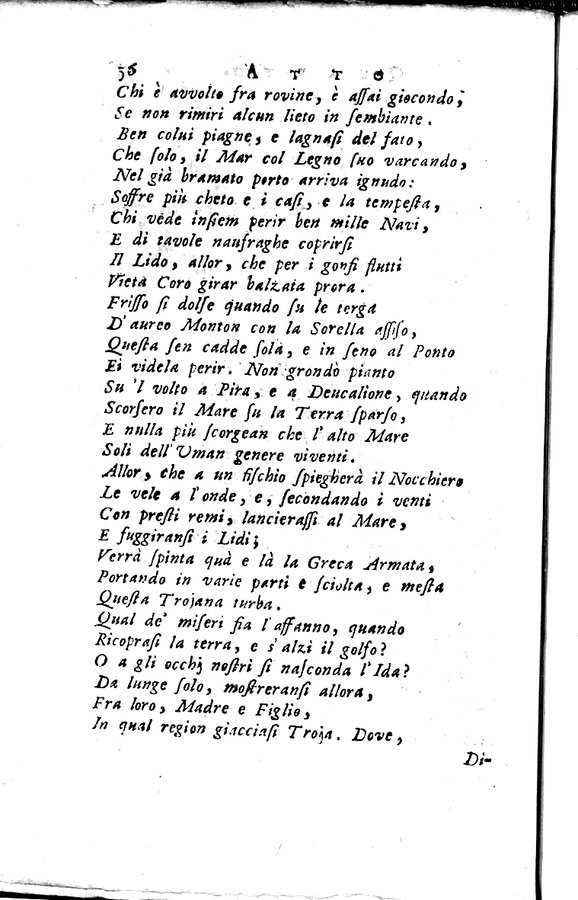 36 ATTO
Chi è avvolto fra rovine, è aſſai giocondo,
Se non rimiri alcun lieto in ſembiante.
Ben colui piagne, e lagnaſi del fato,
Che ſolo, il Mar col Legno ſuo varcando,
Nel già bramato porto arriva ignudo:
Soffre più cheto e i caſi, e la tempeſta,
Chi vede inſiem perir ben mille Navi,
E di tavole naufraghe coprirſi
Il Lido, allor, che per i gonfi flutti
Vieta Coro girar balzata prora.
Friſſo ſi dolſe quando ſu le terga
D'aureo Monton con la Sorella aſſiſo,
Queſta ſen cadde ſola, e in ſeno al Ponto
Ei videla perir. Non grondò pianto
Su 'l volto a Pira, e a Deucalione, quando
Scorſero il Mare ſu la Terra ſparſo,
E nulla più ſcorgean che l'alto Mare
Soli dell'Uman genere viventi.
Allor, che a un fiſchio ſpiegherà il Nocchiero
Le vele a l'onde, e, ſecondando i venti
Con preſti remi, lancieraſſi al Mare,
E fuggiranſi i Lidi;
Verrà ſpinta quà e là la Greca Armata,
Portando in varie parti e ſciolta, e meſta
Queſta Trojana turba.
Qual de' miſeri fia l'affanno, quando
Ricopraſi la terra, e s'alzi il golfo?
O a gli occhj noſtri ſi naſconda l'Ida?
Da lunge ſolo, moſtreranſi allora,
Fra loro, Madre e Figlio,
In qual region giacciaſi Troja. Dove,
Di-